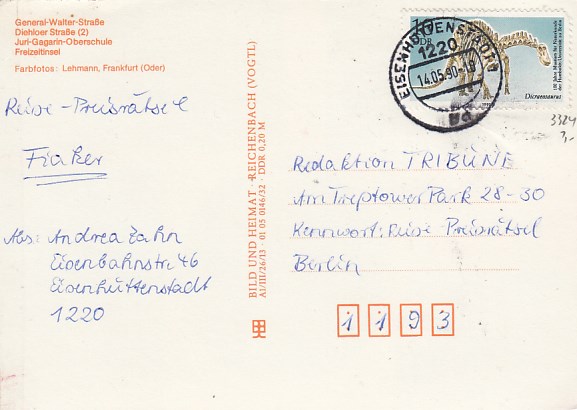 General-Walter-Straße
Diehloer Straße (2)
Juri-Gagarin-Oberschule
Freizeitinsel
Farbfotos: Lehmann, Frankfurt (Oder)
Reise-Preisrätsel
Fiaker
Abs: Andrea Zahn
Eisenbahnstr 46
Eisenhüttenstadt
1220
BILD UND HEIMAT · REICHENBACH (VOGTL)
A1/III/26/13 · 01 05 0146/32 · DDR 0,20 M
10
DDR
Dicraeosaurus
EISENHÜTTENSTADT 1
1220
14.05.90-18
3324
7,-
Redaktion TRIBÜNE
Am Treptower Park 28-30
Kennwort: Reise-Preisrätsel
Berlin
1193